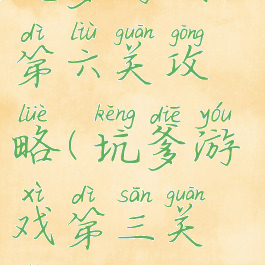 dì liù guān gōng
第六关攻
lüè kēng diē yóu
略(坑爹游
xì dì sān guān
戏第三关